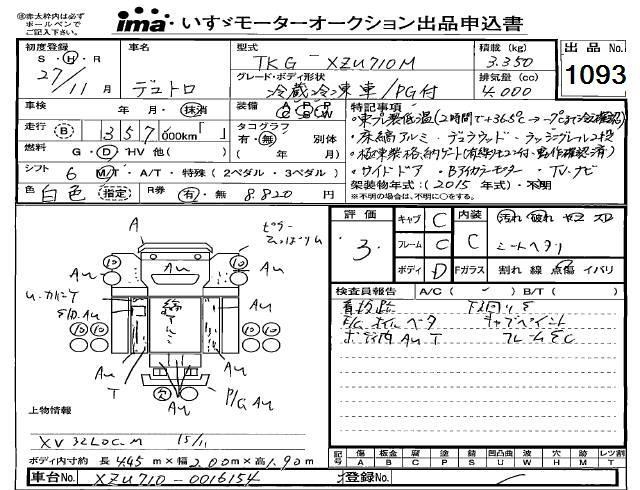 ㊟赤太枠内は必ず
ボールペンで
ご記入下さい。
ima いすゞモーターオークション出品申込書
初度登録
S・H・R
27/11月
車名
デュトロ
型式
TKG-XZU710M
グレード・ボディ形状
冷蔵冷凍車/PG付
積載(kg)
3.350
排気量(cc)
4.000
出品No.
1093
車検 年・月・抹消
装備 A/C P/S P/W
走行 (B) 357,000km「 」
タコグラフ
有・無 別体
( 年/ 月)
燃料 G・D・HV 他( )
シフト 6 M/T・A/T・特殊(2ペダル・3ペダル)
色 白色 (指定)
R券 有・無 8.820円
特記事項
・東プレ製低温(2時間で+36.5℃→
・床縞アルミ・ジュラウッド・ラッシングレール2段
・極東製格納ゲート(
・サイドドア・Bアイカラーモーター・TV・ナビ
架装物年式:(2015年式)・不明
※不明の場合は、不明に○をする。
評価
3.
キャブ C
フレーム C
ボディ D
内装 C
Fガラス
汚れ 破れ ヤニ スレ
シートヘタリ
割れ 線 点傷 イバリ
検査員報告 A/C( ) B/T( ) TM/N( )
看板跡 下回りE
E/Gオイルベータ キャブペイント
ボデ内Au T フレームEC
A
Au
縞アルミ
T
P/G Au
上物情報
XV32LOC-M 15/11
ボディ内寸約 長4.45m×幅2.00m×高1.90m
車台No. XZU710-0016154
登録No.
記号 傷 板金 腐 塗 錆 凹凸曲 波 穴 跡 レツ割
A B C P S U W H M T